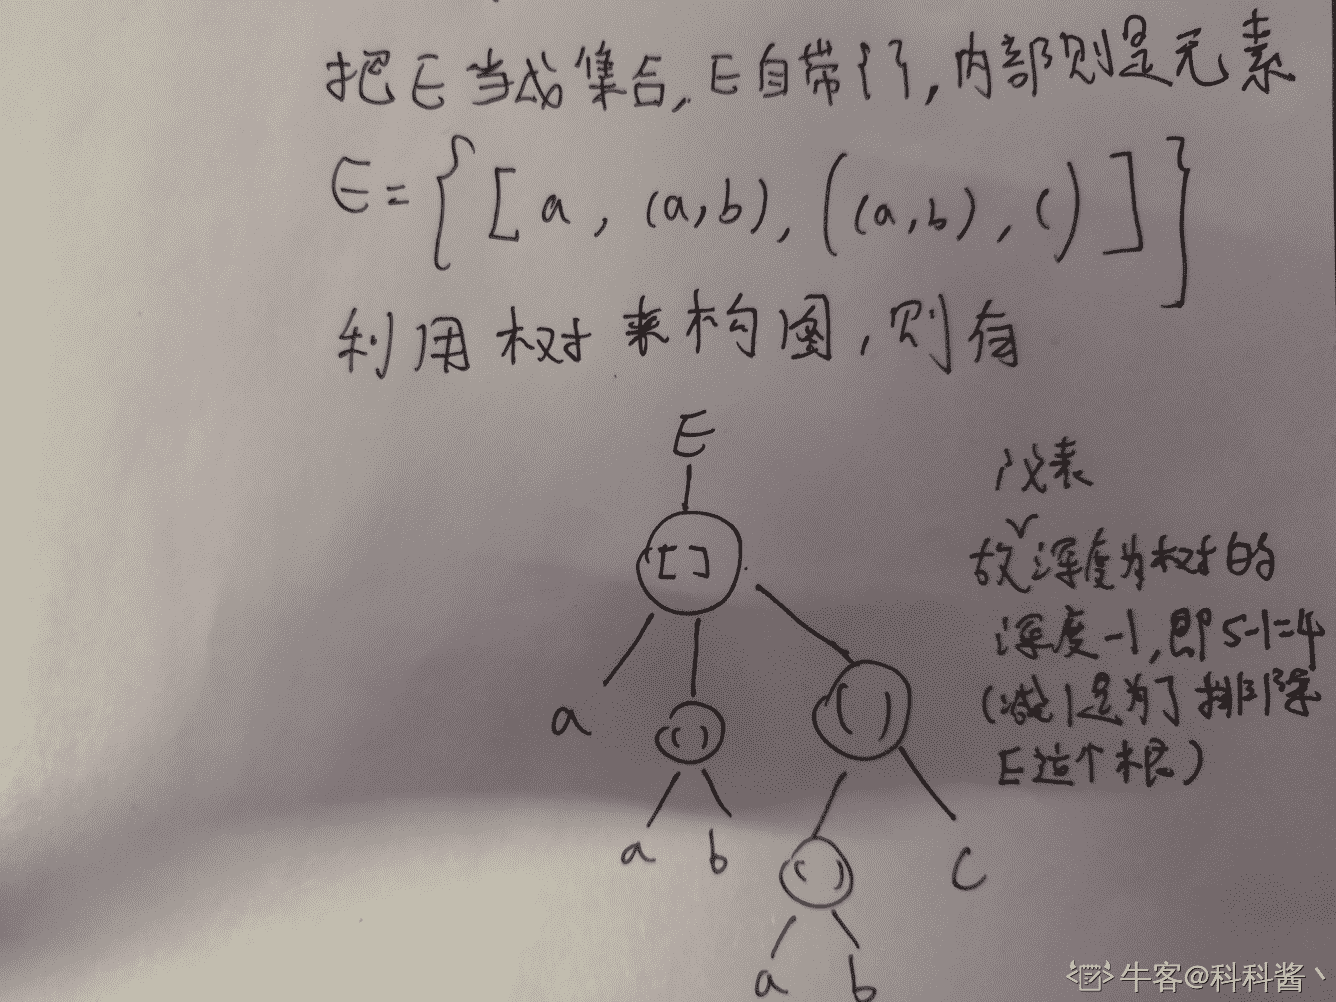 把E当成集合, E自带{ }, 内部则是元素
E={[a, (a,b), ((a,b), c)]}
利用树来构图, 则有
E
[ ]
a
( )
( )
a b
( )
c
a b
仪表
故深度为树的
深度-1, 即5-1=4
(减1是为了排除
E这个根)
牛客@科科酱丶